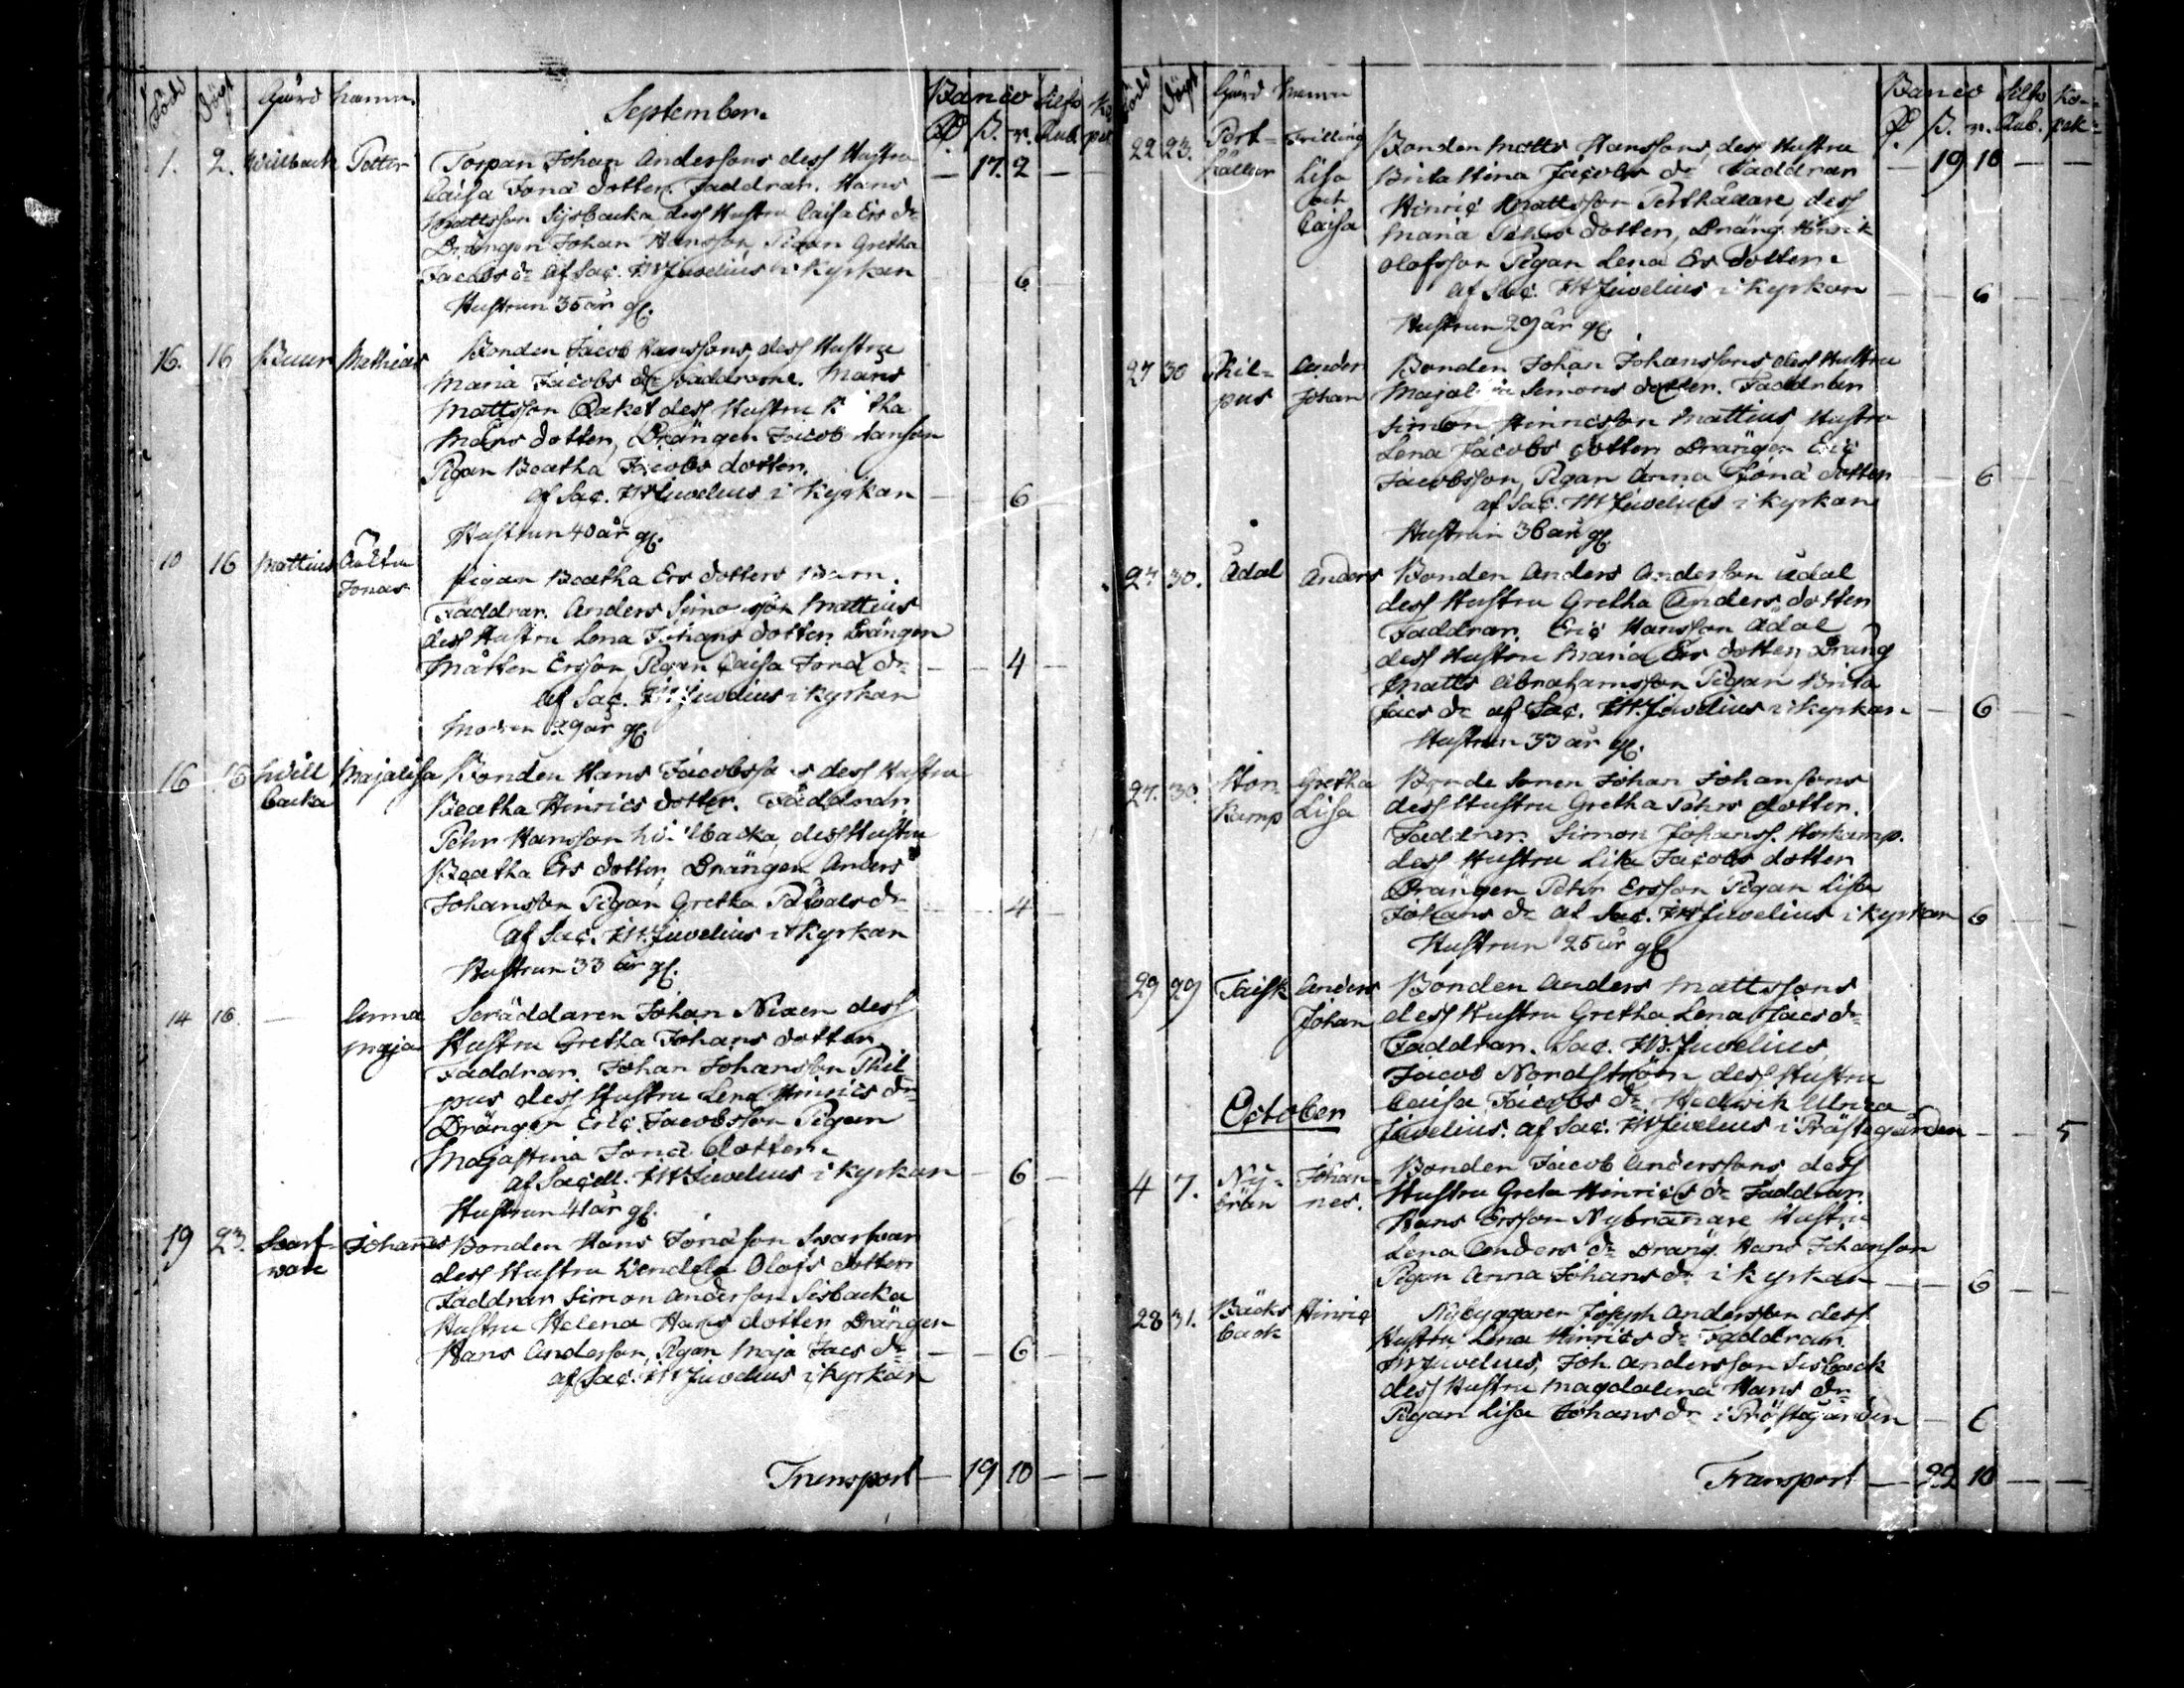 Född Döpt Gård namn. September. Banco Silfr Ko
Rd ß. r. Rub. pek
1. 2. Willback Petter Torpar Johan Anderssons dess Hustru — 17. 2 — —
Caisa Jona dotter. Faddrar. Hans
Mattsson Sysbacka, dess Hustru Caisa Ers dr
Drängen Johan Hansson, Pigan Gretha
Jacobs dr af Sac. FW Juvelius i Kyrkan 6
Hustrun 35 år gl.
16. 16 Buur Mathias Bonden Jacob Hanssons, dess Hustru
Maria Jacobs dr Faddrarne. Måns
Mattsson Raket dess Hustru
Måns dotter, Drängen Jacob Hanson
Pigan Beatha Jacobs dotter.
af Sac. FW Juvelius i Kyrkan — — 6
Hustrun 40 år gl.
10 16 Mattius Jonas Pigan Beatha Ers dotters Barn.
Faddrar. Anders Simonsson Mattius
dess Hustru Lena Johans dotter. Drängen
Mårten Ersson, Pigan Caisa Jona dr — — 4 —
af Sac. FW Juvelius i Kyrkan
Modren 29 år gl.
16 16 Will Majalisa Bonden Hans Jacobssons dess Hustru
backa Beatha Hinrics dotter. Faddrar
Pehr Hansson Willbacka, dess Hustru
Beatha Ers dotter, Drängen Anders
Johansson Pigan Gretha Påhvals dr — — 4 —
af Sac. FW. Juvelius i Kyrkan
Hustrun 33 år gl.
14 16 — Anna Skräddaren Johan Nixen dess
Maja Hustru Gretha Johans dotter
Faddrar. Johan Johansson Phil
pus dess Hustru Lena Hinrics dr
Drängen Eric Jacobsson Pigan
Majastina Jona dotter.
af Sacell. FW Juvelius i Kyrkan — 6 —
Hustrun 41 år gl.
19 23. Svarf- Johannes Bonden Hans Jonasson Svarfvar
var dess Hustru Vendela Olofs dotter
Faddrar Simon Anderson Sisbacka
Hustru Helena Hans dotter Drängen
Hans Anderson, Pigan Maja Jacs dr — — 6 —
af Sac. FW Juvelius i Kyrkan
Transport — 19 10 — —
Född Döpt Gård namn Banco Silfr Ko-
Rd ß. r. Rub. pek-
22 23. Pert- Tvilling Bonden Matts Hanssons, dess Hustru — 19 10 — —
hållar Lisa Britastina Jacobs dr Faddrar
och Hinric Mattsson Perthålare, dess
Caisa Maria Pehrs dotter, Dräng. Hinrik
Olofsson Pigan Lena Ers dotter.
af Sac. FW Juvelius i Kyrkan — — 6 — —
Hustrun 29 år gl.
27 30 Phil- Ander Bonden Johan Johanssons, dess Hustru
pus Johan Majalisa Simons dotter. Faddrar
Simon Hinricsson Mattius, Hustru
Lena Jacobs dotter Drängen Eric
Jacobsson, Pigan Anna Jona dotter — 6 —
af Sac. FW Juvelius i Kyrkan
Hustrun 36 år gl.
27 30. Ådal Anders Bonden Anders Anderson Ådal
dess Hustru Gretha Anders dotter
Faddrar. Eric Hansson Ådal
dess Hustru Maria Ers dotter, Dräng
Matts Abrahamsson Pigan Brita
Jacs dr af Sac. FW. Juvelius i Kyrkan — 6 — —
Hustrun 33 år gl.
27. 30. Hon- Gretha Bonde Sonen Johan Johansons
kamp Lisa dess Hustru Gretha Pehrs dotter.
Faddrar. Simon Johanss. Honkamp.
dess Hustru Lisa Jacobs dotter
Drängen Petter Ersson Pigan Lisa
Johans dr af Sac. FW Juvelius i Kyrkan 6 —
Hustrun 25 år gl
29 29 Faisk Anders Bonden Anders Mattssons
Johan dess Hustru Gretha Lena Jacs dr
Faddrar. Sac. FW. Juvelius,
Jacob Nordström dess Hustru
October Caisa Jacobs dr Hedwik Ulrica
Juvelius. af Sac. FW Juvelius i Prästegården — — 5
4 7. Ny- Johan- Bonden Jacob Anderssons dess
brän nes. Hustru Greta Hinrics dr Faddrar.
Hans Ersson Nybrännare Hustru
Lena Anders dr Dräng. Hans Johanson
Pigan Anna Johans dr i Kyrkan — — 6 —
28 31. Bäcks Hinric Nybyggaren Joseph Andersson dess
back Hustru Lena Hinrics dr Faddrar.
FW Juvelius, Joh. Andersson Sisback
dess Hustru Magdalena Hans dr
Pigan Lisa Johans dr i Prästgården — 6
Transport — 22 10 — —